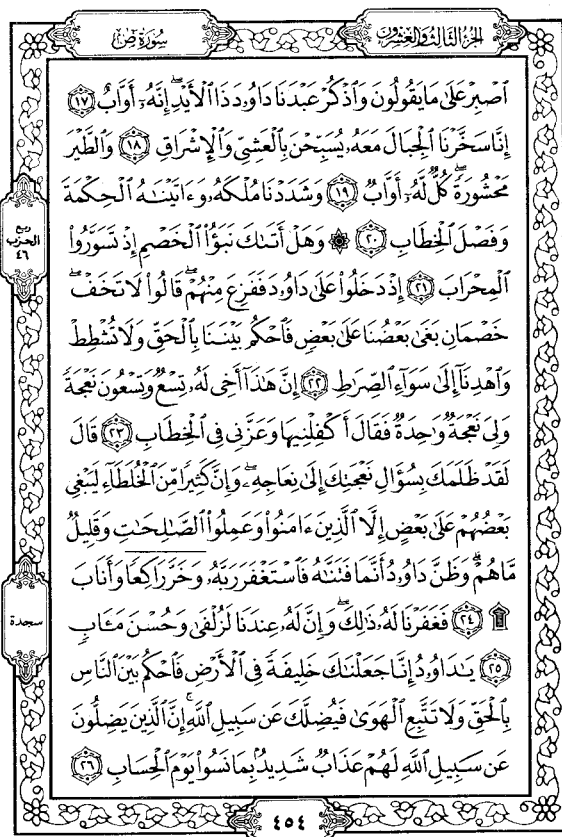 الجزء الثالث والعشرون
سورة ص
ٱصْبِرْ عَلَىٰ مَا يَقُولُونَ وَٱذْكُرْ عَبْدَنَا دَاوُۥدَ ذَا ٱلْأَيْدِ ۖ إِنَّهُۥٓ أَوَّابٌ ﴿١٧﴾
إِنَّا سَخَّرْنَا ٱلْجِبَالَ مَعَهُۥ يُسَبِّحْنَ بِٱلْعَشِىِّ وَٱلْإِشْرَاقِ ﴿١٨﴾ وَٱلطَّيْرَ
مَحْشُورَةً ۖ كُلٌّ لَّهُۥٓ أَوَّابٌ ﴿١٩﴾ وَشَدَدْنَا مُلْكَهُۥ وَءَاتَيْنَٰهُ ٱلْحِكْمَةَ
وَفَصْلَ ٱلْخِطَابِ ﴿٢٠﴾ ۞ وَهَلْ أَتَىٰكَ نَبَؤُا۟ ٱلْخَصْمِ إِذْ تَسَوَّرُوا۟
ٱلْمِحْرَابَ ﴿٢١﴾ إِذْ دَخَلُوا۟ عَلَىٰ دَاوُۥدَ فَفَزِعَ مِنْهُمْ ۖ قَالُوا۟ لَا تَخَفْ ۖ
خَصْمَانِ بَغَىٰ بَعْضُنَا عَلَىٰ بَعْضٍ فَٱحْكُم بَيْنَنَا بِٱلْحَقِّ وَلَا تُشْطِطْ
وَٱهْدِنَآ إِلَىٰ سَوَآءِ ٱلصِّرَٰطِ ﴿٢٢﴾ إِنَّ هَٰذَآ أَخِى لَهُۥ تِسْعٌ وَتِسْعُونَ نَعْجَةً
وَلِىَ نَعْجَةٌ وَٰحِدَةٌ فَقَالَ أَكْفِلْنِيهَا وَعَزَّنِى فِى ٱلْخِطَابِ ﴿٢٣﴾ قَالَ
لَقَدْ ظَلَمَكَ بِسُؤَالِ نَعْجَتِكَ إِلَىٰ نِعَاجِهِۦ ۖ وَإِنَّ كَثِيرًا مِّنَ ٱلْخُلَطَآءِ لَيَبْغِى
بَعْضُهُمْ عَلَىٰ بَعْضٍ إِلَّا ٱلَّذِينَ ءَامَنُوا۟ وَعَمِلُوا۟ ٱلصَّٰلِحَٰتِ وَقَلِيلٌ
مَّا هُمْ ۗ وَظَنَّ دَاوُۥدُ أَنَّمَا فَتَنَّٰهُ فَٱسْتَغْفَرَ رَبَّهُۥ وَخَرَّ رَاكِعًا وَأَنَابَ
۩ ﴿٢٤﴾ فَغَفَرْنَا لَهُۥ ذَٰلِكَ ۖ وَإِنَّ لَهُۥ عِندَنَا لَزُلْفَىٰ وَحُسْنَ مَـَٔابٍ
﴿٢٥﴾ يَٰدَاوُۥدُ إِنَّا جَعَلْنَٰكَ خَلِيفَةً فِى ٱلْأَرْضِ فَٱحْكُم بَيْنَ ٱلنَّاسِ
بِٱلْحَقِّ وَلَا تَتَّبِعِ ٱلْهَوَىٰ فَيُضِلَّكَ عَن سَبِيلِ ٱللَّهِ ۚ إِنَّ ٱلَّذِينَ يَضِلُّونَ
عَن سَبِيلِ ٱللَّهِ لَهُمْ عَذَابٌ شَدِيدٌۢ بِمَا نَسُوا۟ يَوْمَ ٱلْحِسَابِ ﴿٢٦﴾
ربع
الحزب
٤٦
سجدة
٤٥٤